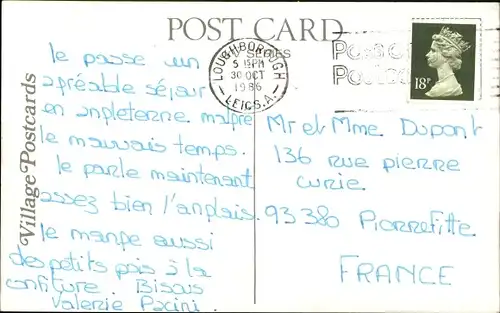 POST CARD
BY SERIES
LOUGHBOROUGH
5 15PM
30 OCT
1986
LEICS.A.
18P
le passe un
agréable séjour
en angleterre malgré
le mauvais temps.
le parle maintenant
assez bien l'anglais.
le mange aussi
des petits pois à la
confiture. Bisous
Valerie Pacini.
Mr et Mme Dupont
136 rue pierre
curie.
93380 Pierrefitte
FRANCE
Village Postcards